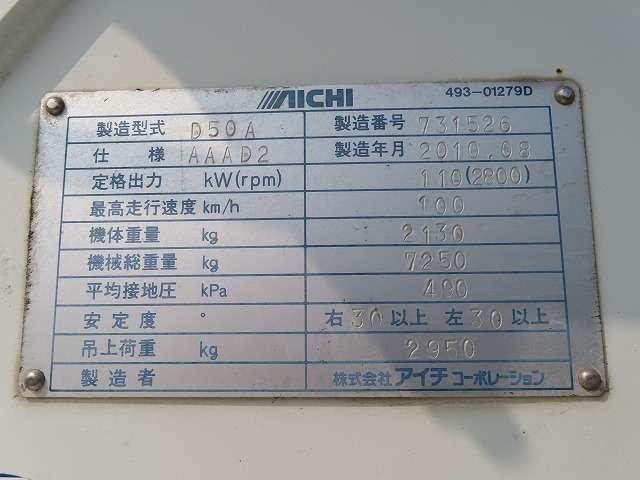 AICHI 493-01279D
製造型式 D50A 製造番号 731526
仕様 AAAD2 製造年月 2010.08
定格出力 kW(rpm) 110(2800)
最高走行速度 km/h 100
機体重量 kg 2130
機械総重量 kg 7250
平均接地圧 kPa 400
安定度 ° 右30以上 左30以上
吊上荷重 kg 2950
製造者 株式会社アイチコーポレーション